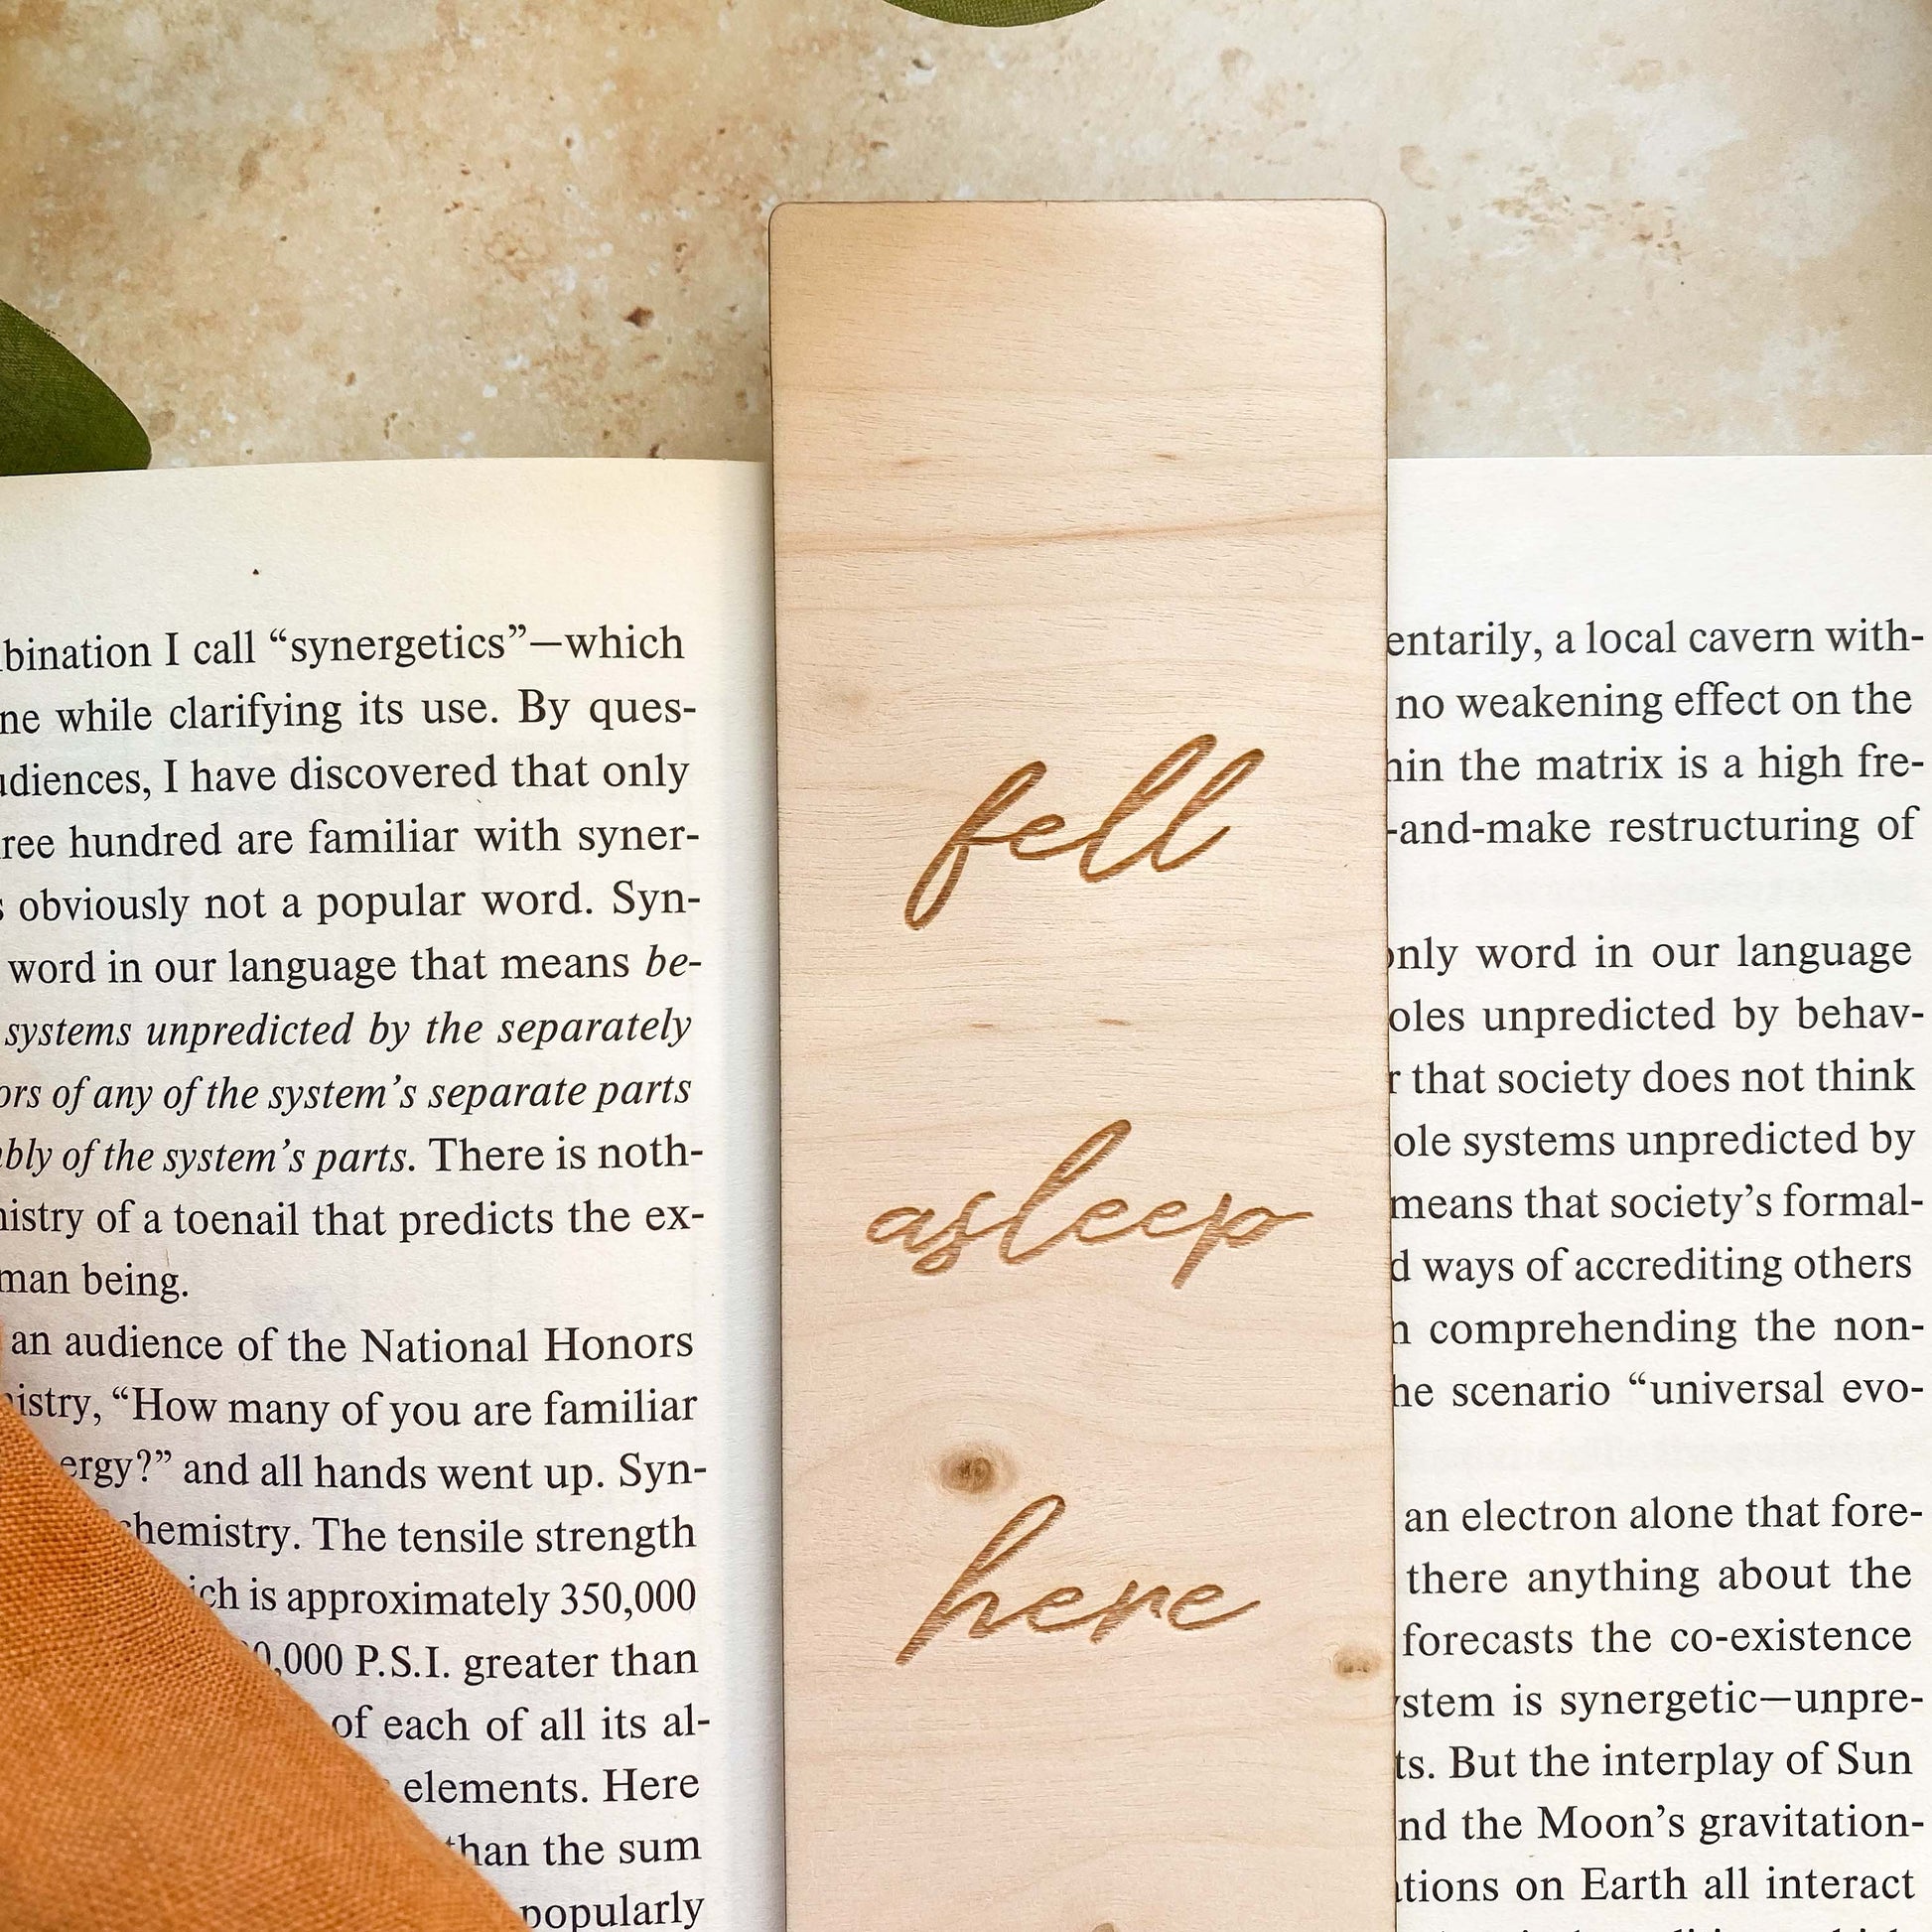 I call “synergetics”—which
while clarifying its use. By ques-
I have discovered that only
hundred are familiar with syner-
obviously not a popular word. Syn-
word in our language that means be-
systems unpredicted by the separately
of any of the system’s separate parts
of the system’s parts. There is noth-
of a toenail that predicts the ex-
being.
an audience of the National Honors
“How many of you are familiar
and all hands went up. Syn-
chemistry. The tensile strength
is approximately 350,000
P.S.I. greater than
of each of all its al-
elements. Here
than the sum
popularly
fell
asleep
here
a local cavern with-
no weakening effect on the
the matrix is a high fre-
-and-make restructuring of
only word in our language
unpredicted by behav-
that society does not think
systems unpredicted by
means that society’s formal-
ways of accrediting others
comprehending the non-
scenario “universal evo-
an electron alone that fore-
there anything about the
forecasts the co-existence
is synergetic—unpre-
But the interplay of Sun
the Moon’s gravitation-
on Earth all interact